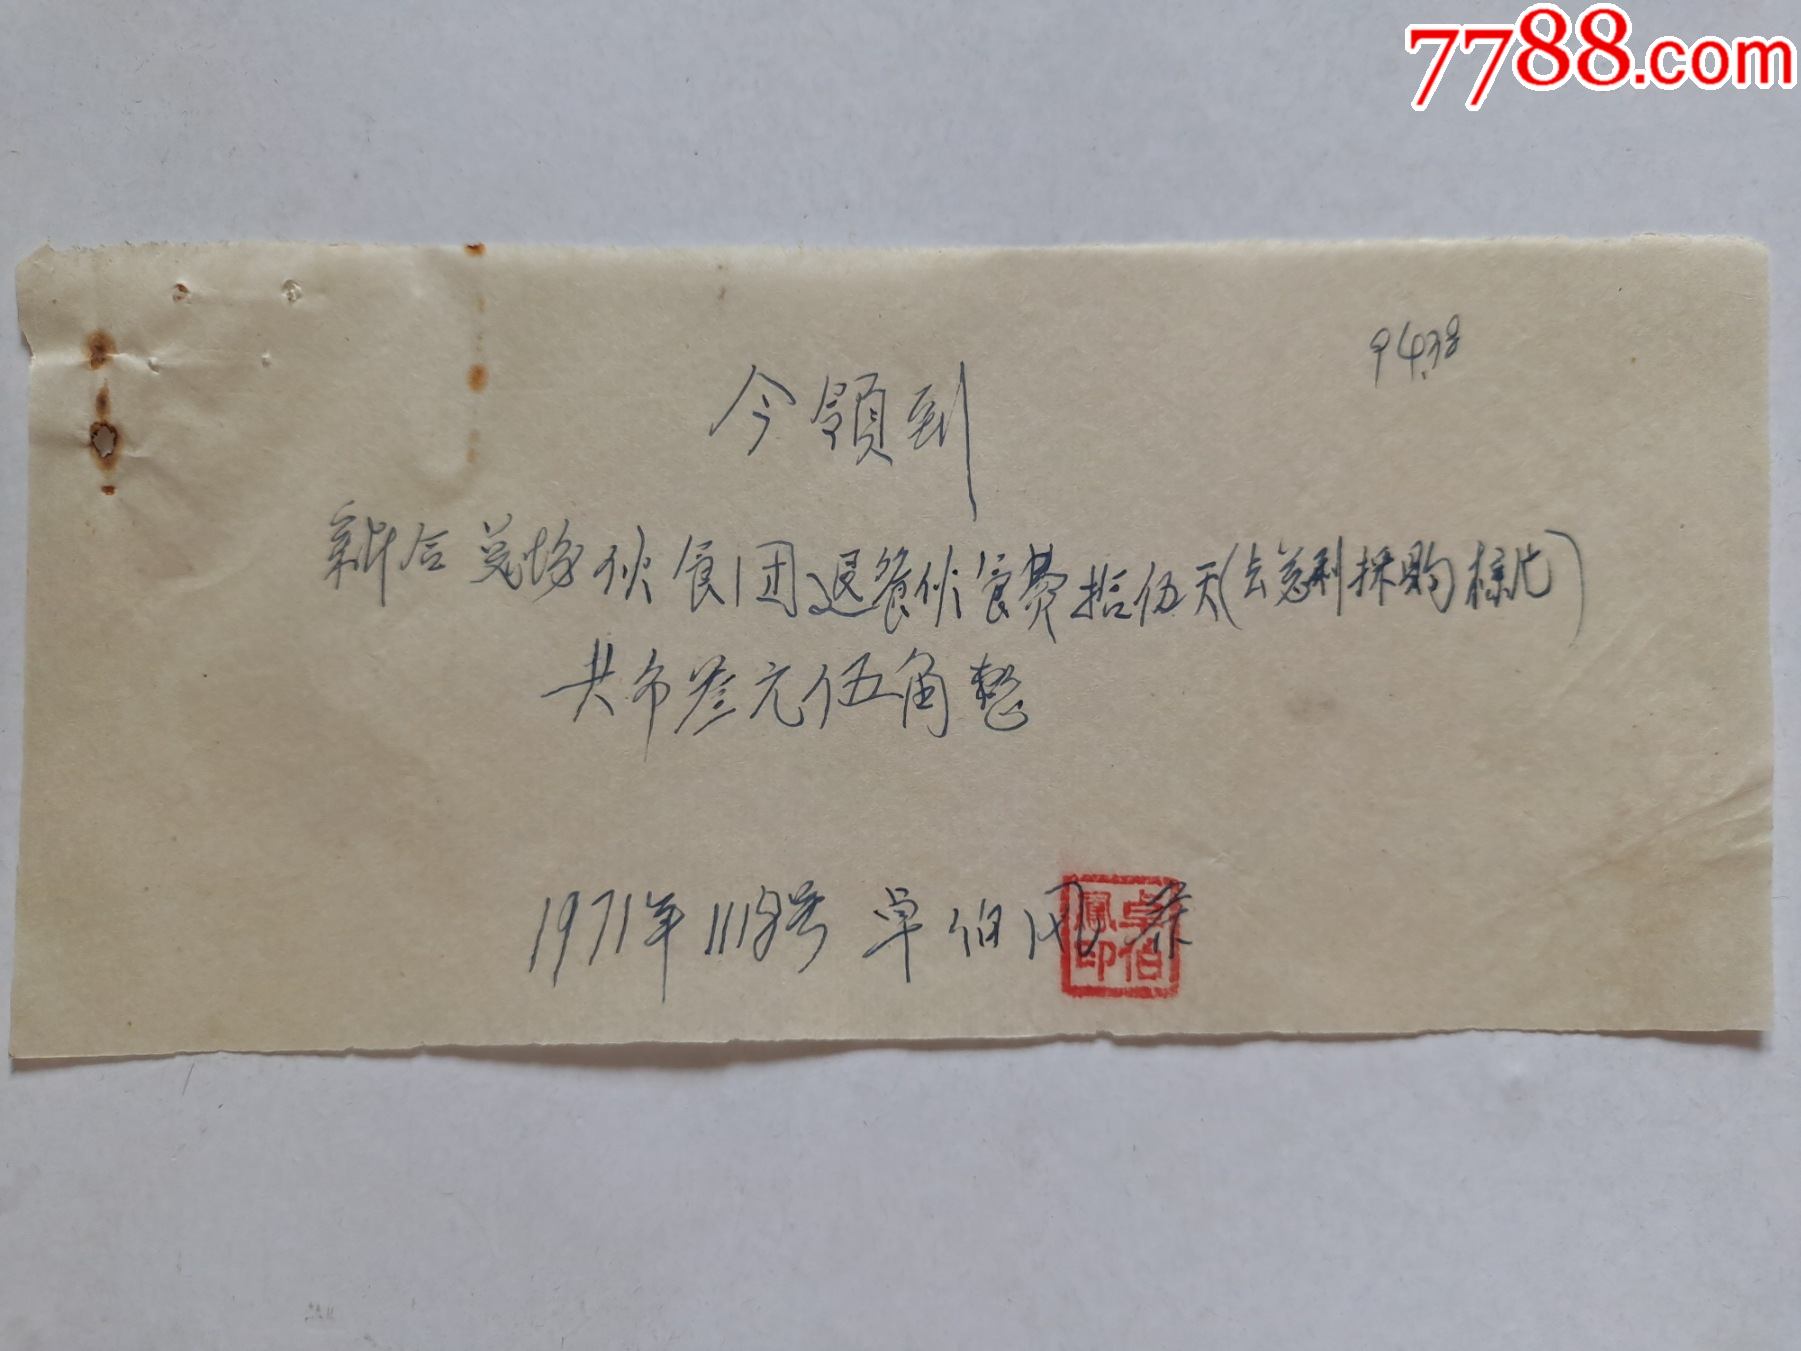 7788.com
943号
今领到
新合总场伙食团退餐伙食费拾伍天(去慈利採购标)
共币叁元伍角整
1971年11月8号 卓伯凤
卓伯鳳印